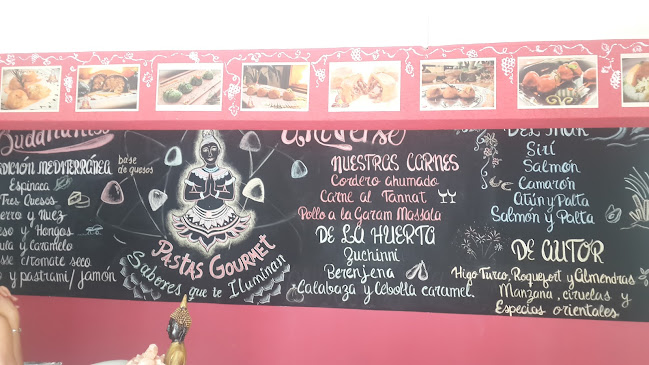 Buddhamas
ADICION MEDITERRÁNEA
base de quesos
Espinaca
Tres Quesos
erro y Nuez
eso y Hongos
ula y Caramelo
sse cromate seco
o y pastrami/jamón
PASTAS GOURMET
Sabores que te Iluminan
Universe
NUESTRAS CARNES
Cordero ahumado
Carne al Tannat
Pollo a la Garam Massala
DE LA HUERTA
Zuchinni
Berenjena
Calabaza y Cebolla caramel.
DEL MAR
Sirí
Salmón
Camarón
Atún y Palta
Salmón y Palta
DE AUTOR
Higo Turco, Roquefort y Almendras
Manzana, ciruelas y
Especias orientales